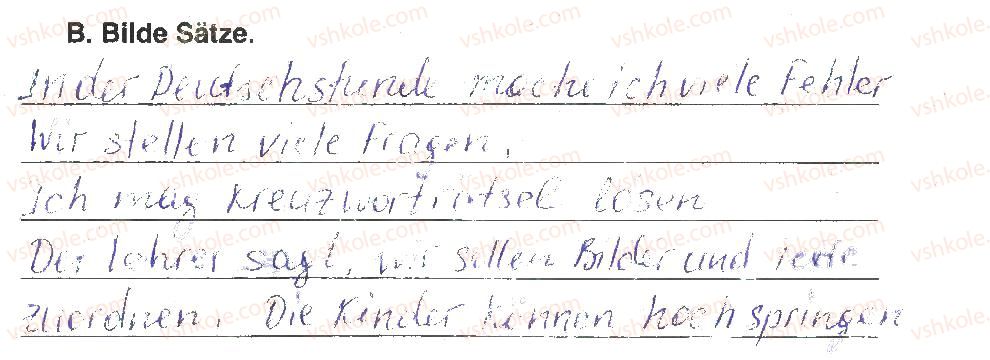 B. Bilde Sätze.
In der Deutschstunde mache ich viele Fehler
Wir stellen viele Fragen.
Ich mag Kreuzworträtsel lösen
Der Lehrer sagt, wir sollen Bilder und Texte
zuordnen. Die Kinder können hoch springen